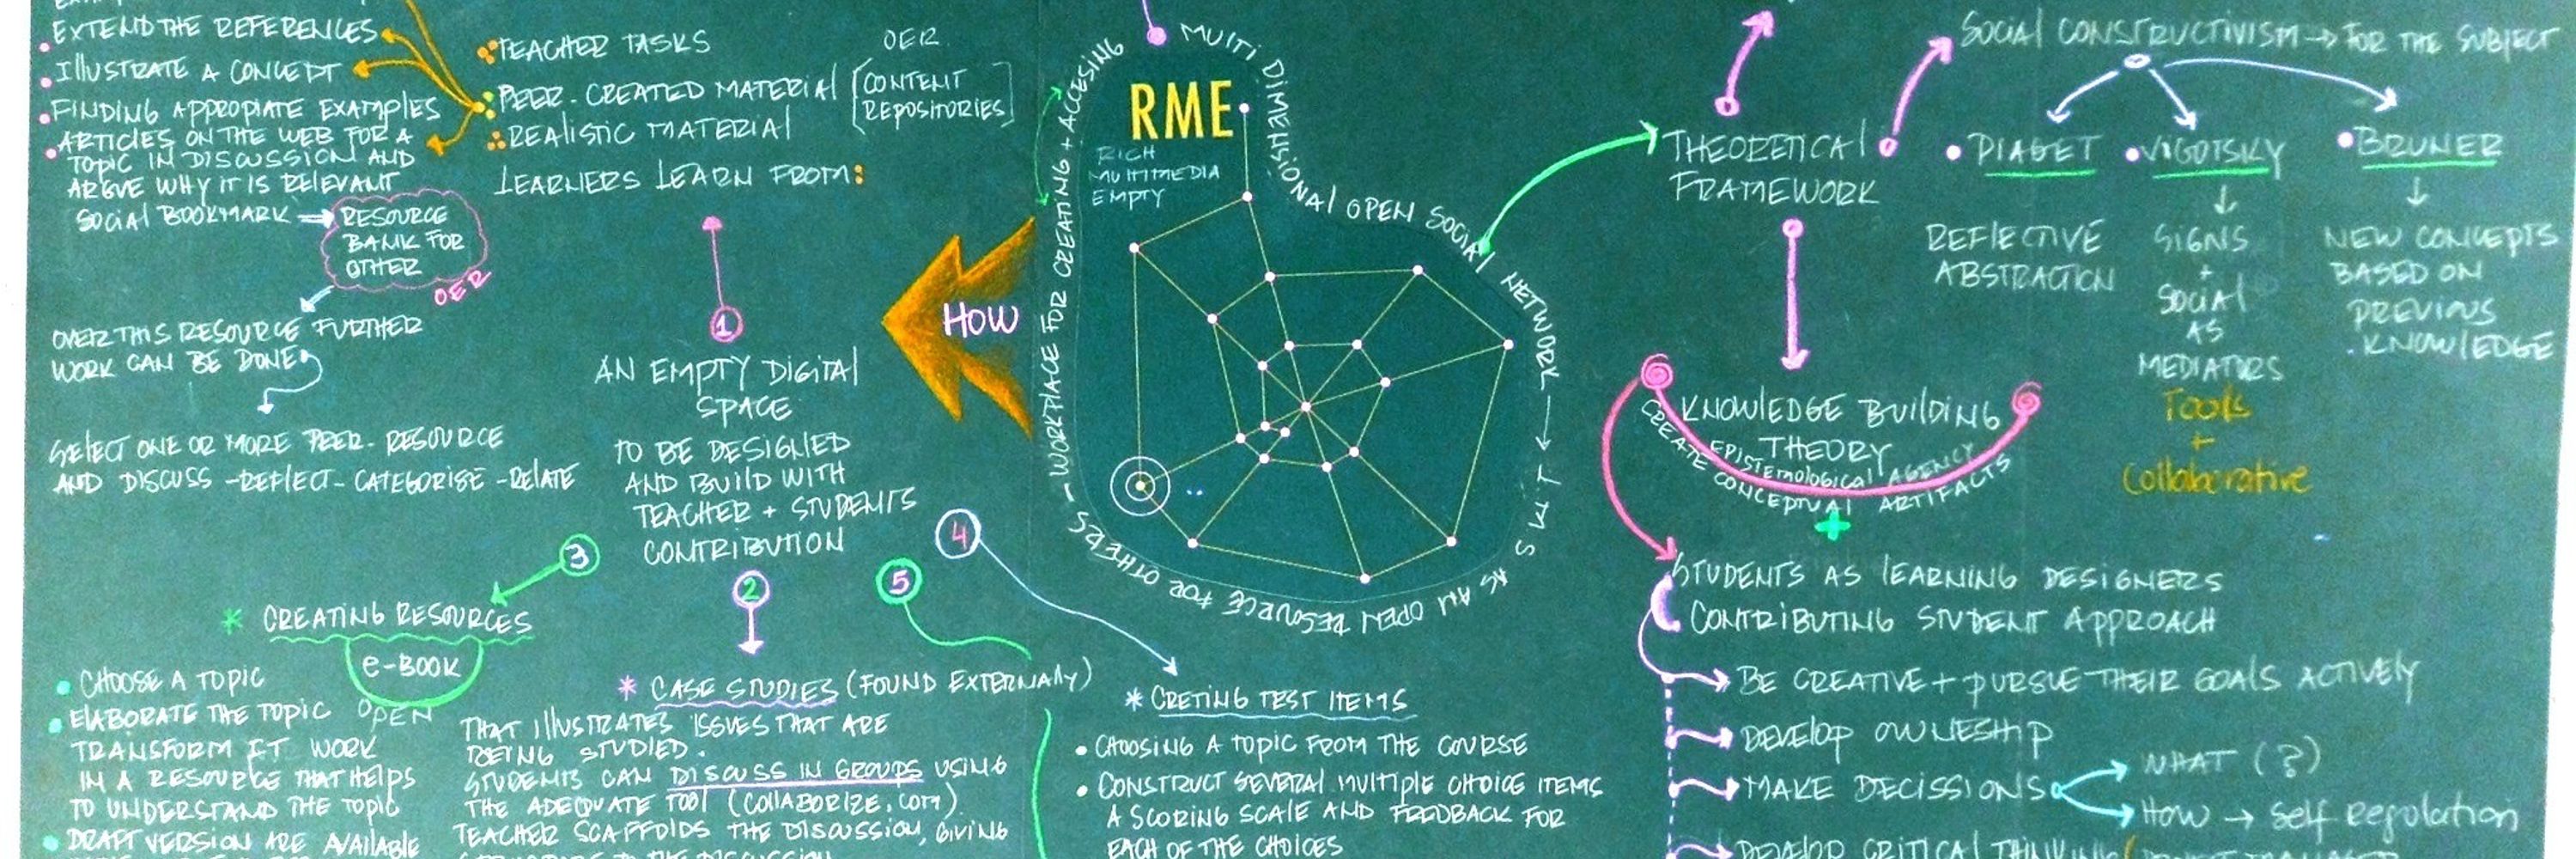 EXTEND THE REFERENCES
ILLUSTRATE A CONCEPT
FINDING APPROPIATE EXAMPLES
ARTICLES ON THE WEB FOR A
TOPIC IN DISCUSSION AND
ARGUE WHY IT IS RELEVANT
SOCIAL BOOKMARK
RESOURCE
BANK FOR
OTHER
OER
OVER THIS RESOURCE FURTHER
WORK CAN BE DONE
SELECT ONE OR MORE PEER-RESOURCE
AND DISCUSS - REFLECT - CATEGORISE - RELATE
TEACHER TASKS
PEER-CREATED MATERIAL
REALISTIC MATERIAL
LEARNERS LEARN FROM:
OER
CONTENT
REPOSITORIES
1
AN EMPTY DIGITAL
SPACE
TO BE DESIGNED
AND BUILD WITH
TEACHER + STUDENTS
CONTRIBUTION
HOW
RME
RICH
MULTIMEDIA
EMPTY
MULTI DIMENSIONAL OPEN SOCIAL NETWORK → T M S AS AN OPEN RESOURCE FOR OTHERS - WORKPLACE FOR CREATING + ACCESING
3
* CREATING RESOURCES
e-BOOK
OPEN
CHOOSE A TOPIC
ELABORATE THE TOPIC
TRANSFORM IT WORK
IN A RESOURCE THAT HELPS
TO UNDERSTAND THE TOPIC
DRAFT VERSION ARE AVAILABLE
2
* CASE STUDIES (FOUND EXTERNALLY)
THAT ILLUSTRATES ISSUES THAT ARE
BEING STUDIED.
STUDENTS CAN DISCUSS IN GROUPS USING
THE ADEQUATE TOOL (COLLABORIZE.COM)
TEACHER SCAFFOLDS THE DISCUSSION, GIVING
5
4
* CRETING TEST ITEMS
CHOOSING A TOPIC FROM THE COURSE
CONSTRUCT SEVERAL MULTIPLE CHOICE ITEMS
A SCORING SCALE AND FEEDBACK FOR
EACH OF THE CHOICES
THEORETICAL
FRAMEWORK
SOCIAL CONSTRUCTIVISM → FOR THE SUBJECT
PIAGET
REFLECTIVE
ABSTRACTION
VIGOTSKY
SIGNS
+
SOCIAL
AS
MEDIATORS
TOOLS
+
Collaborative
BRUNER
NEW CONCEPTS
BASED ON
PREVIOUS
KNOWLEDGE
KNOWLEDGE BUILDING
THEORY
EPISTEMOLOGICAL AGENCY
CREATE CONCEPTUAL ARTIFACTS
+
STUDENTS AS LEARNING DESIGNERS
CONTRIBUTING STUDENT APPROACH
BE CREATIVE + PURSUE THEIR GOALS ACTIVELY
DEVELOP OWNESHIP
MAKE DECISSIONS
WHAT (?)
HOW → Self Regulation
DEVELOP CRITICAL THINKING